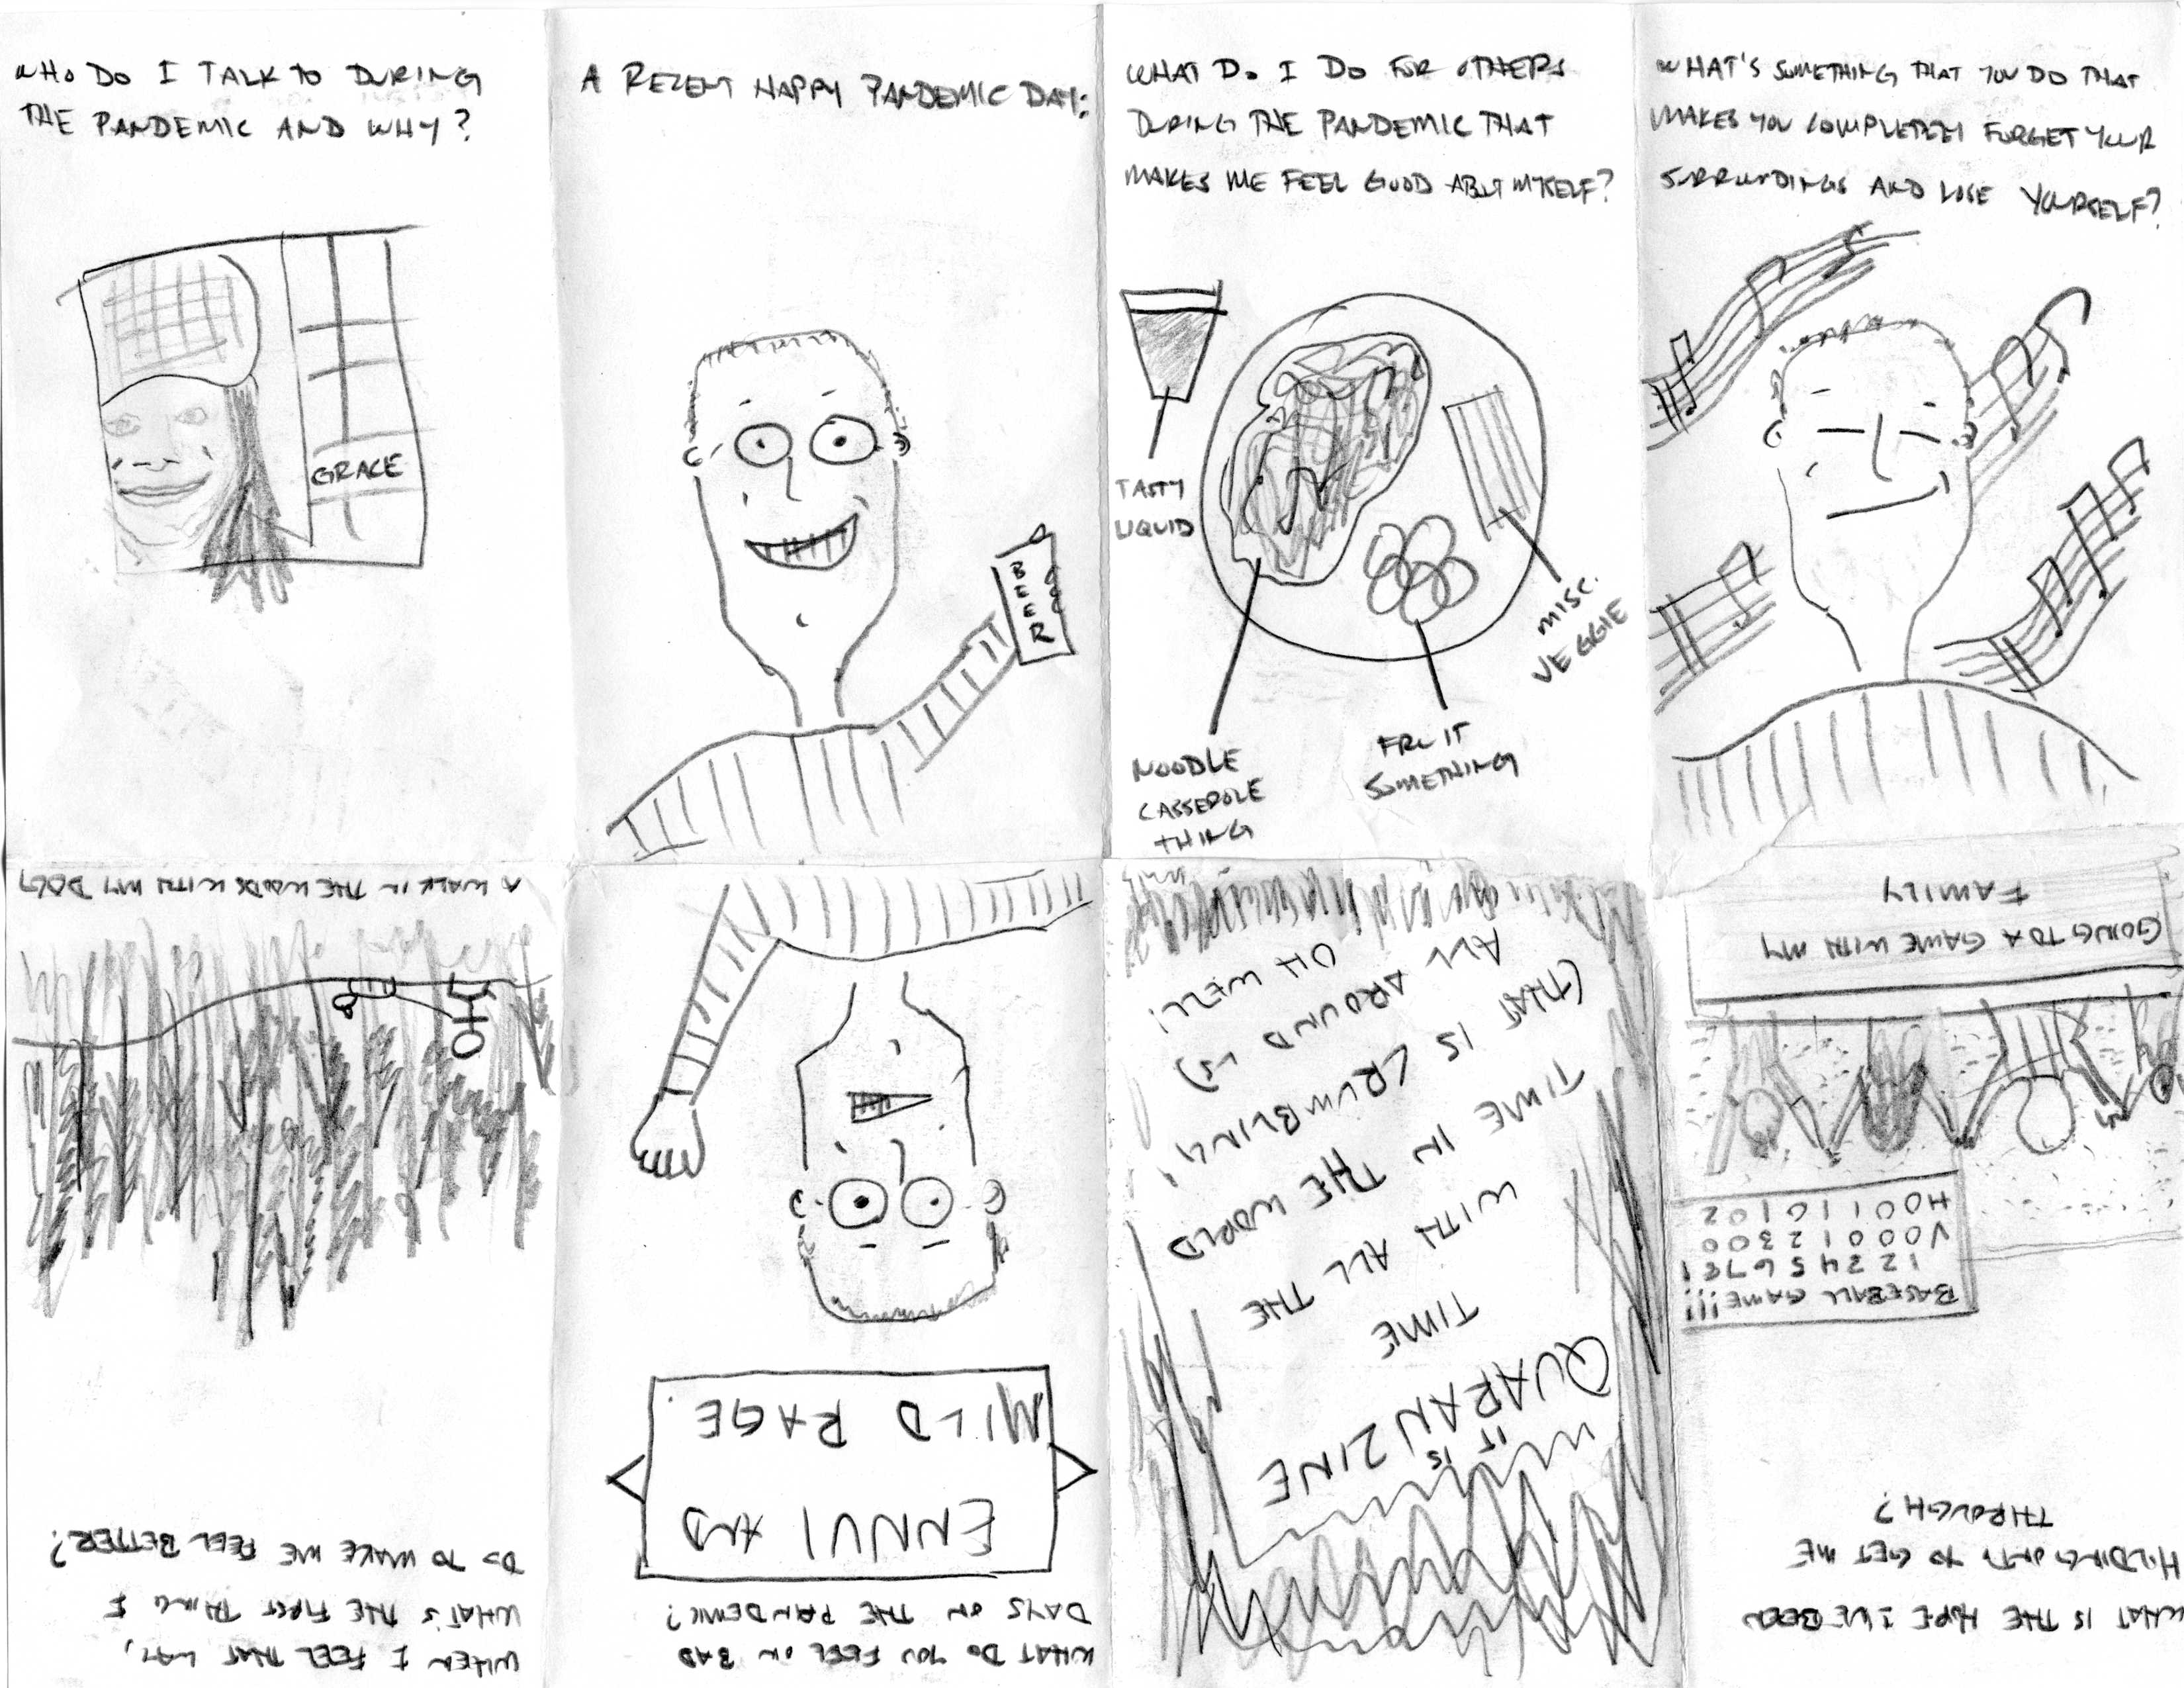 WHO DO I TALK TO DURING
THE PANDEMIC AND WHY?
GRACE
A RECENT HAPPY PANDEMIC DAY:
BEER
WHAT DO I DO FOR OTHERS
DURING THE PANDEMIC THAT
MAKES ME FEEL GOOD ABOUT MYSELF?
TASTY
LIQUID
MISC.
VEGGIE
NOODLE
CASSEROLE
THING
FRUIT
SOMETHING
WHAT'S SOMETHING THAT YOU DO THAT
MAKES YOU COMPLETELY FORGET YOUR
SURROUNDINGS AND LOSE YOURSELF?
WHAT IS THE HOPE I'VE BEEN
HOLDING ONTO TO GET ME
THROUGH?
BASEBALL GAME!!!
1 2 3 4 5 6 7 8 9
V 0 0 0 1 2 3 0 0
H 0 0 1 1 0 1 0 2
GOING TO A GAME WITH MY
FAMILY
IT IS
QUARANZINE
TIME
WITH ALL THE
TIME IN THE WORLD
(THAT IS CRUMBLING
ALL AROUND US)
OH WELL!
WHAT DO YOU FEEL ON BAD
DAYS ON THE PANDEMIC?
ENNUI AND
MILD RAGE
WHEN I FEEL THAT WAY,
WHAT'S THE FIRST THING I
DO TO MAKE ME FEEL BETTER?
A WALK IN THE WOODS WITH MY DOG